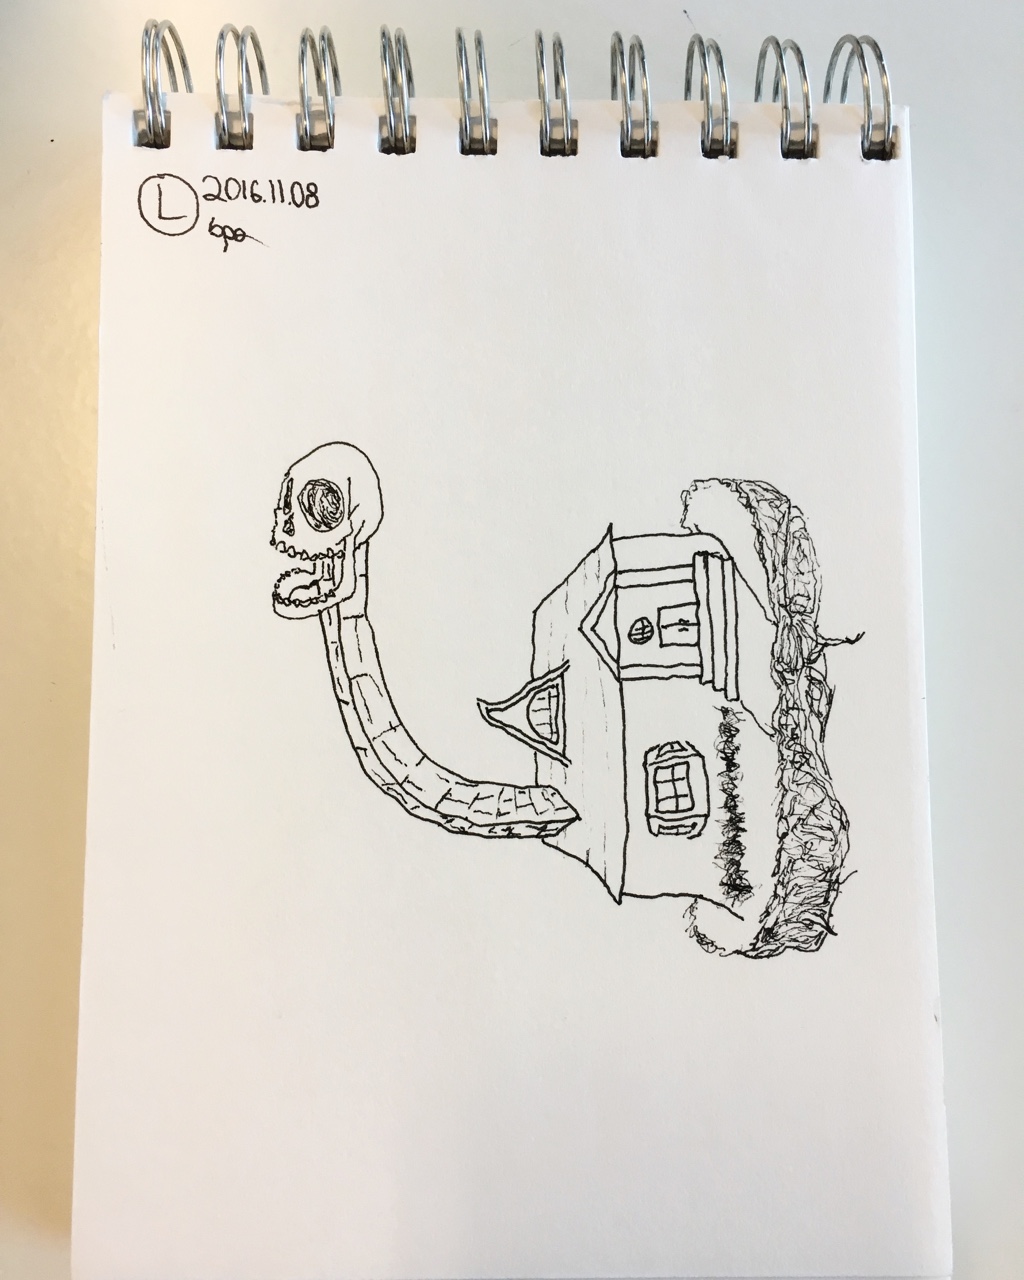 L 2016.11.08
bpa